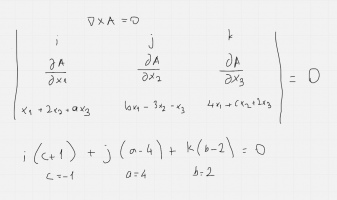 ∇×A=0
i j k
∂A/∂x₁ ∂A/∂x₂ ∂A/∂x₃ = 0
x₁+2x₂+ax₃ bx₁-3x₂-x₃ 4x₁+cx₂+2x₃
i(c+1) + j(a-4) + k(b-2) = 0
c=-1 a=4 b=2